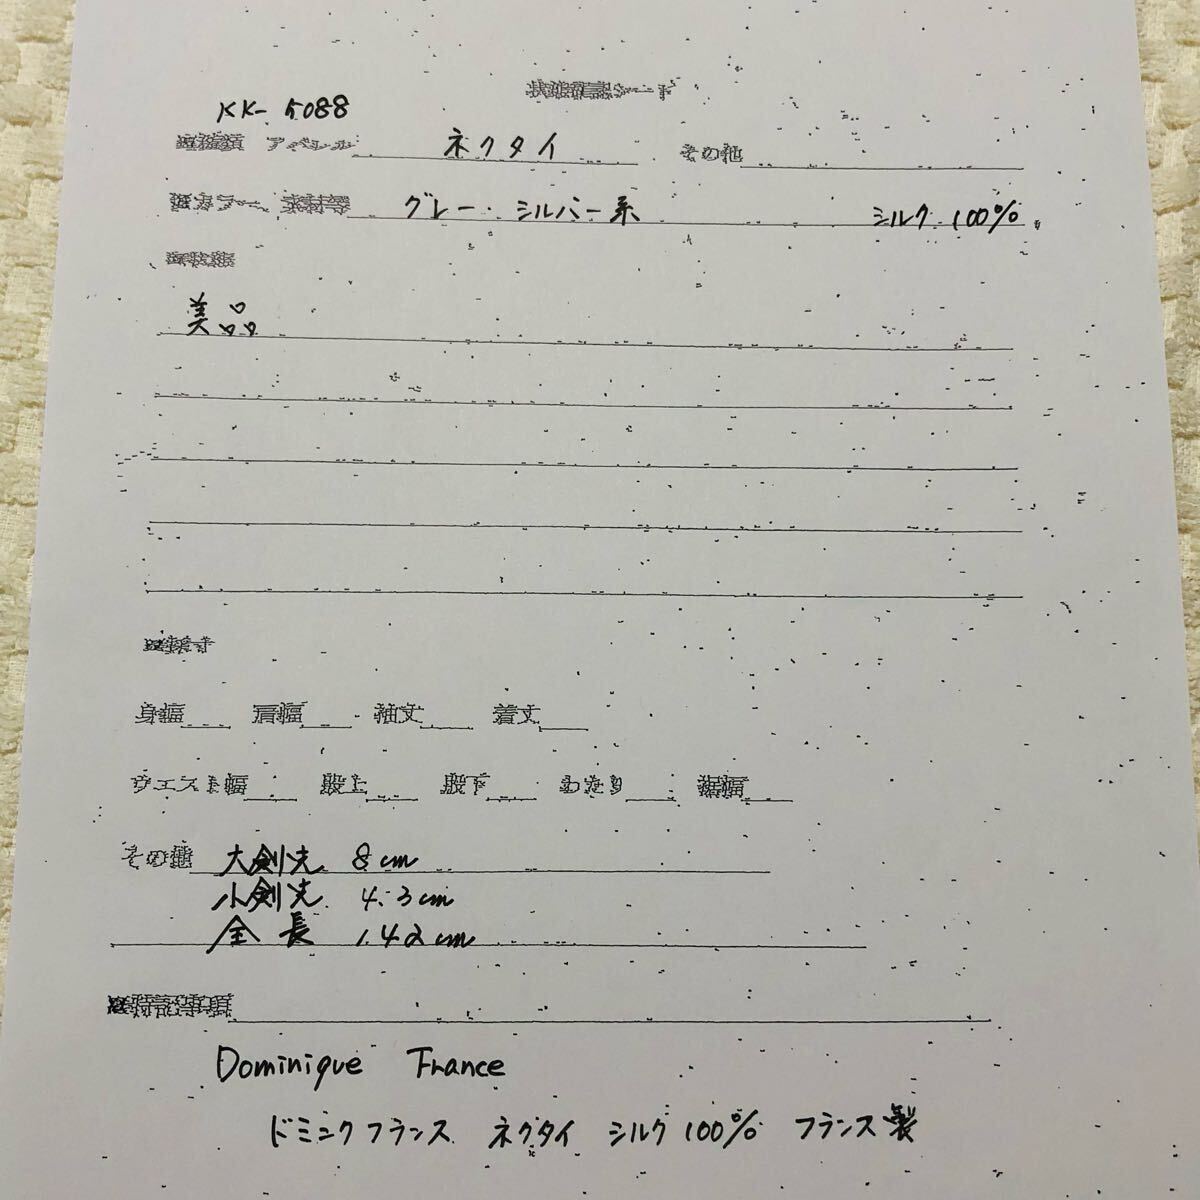 状態確認シート
KK-5088
アパレル ネクタイ その他
カラー、素材等 グレー・シルバー系 シルク 100%
美品
身幅 肩幅 袖丈 着丈
ウエスト幅 股上 股下 わたり 裾幅
その他 大剣先 8cm
小剣先 4.3cm
全長 142cm
特記事項
Dominique France
ドミニクフランス ネクタイ シルク100% フランス製